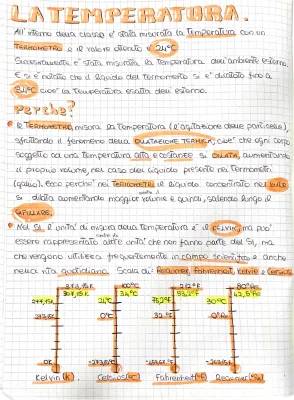 LA TEMPERATURA.
All'interno della classe è stata misurata la Temperatura con un
TERMOMETRO e il valore ottenuto è 24°C
Successivamente è stata misurata la Temperatura dell'ambiente esterno.
E si è notato che il liquido del termometro si è dilatato fino a
34°C cioè la Temperatura esatta dell'esterno.
Perché?
Il TERMOMETRO misura la Temperatura (l'agitazione delle particelle),
sfruttando il fenomeno della DILATAZIONE TERMICA, cioè che ogni corpo
soggetto ad una Temperatura alta e costante si DILATA, aumentando
il proprio volume, nel caso del liquido presente nel Termometro
Ecco perché nei TERMOMETRI il liquido concentrato nel bulbo
si dilata aumentando maggior volume e quindi, salendo lungo il
CAPILLARE.
Nel SI, l'unità di misura della Temperatura è il KELVIN, ma può
essere rappresentato altre unità che non fanno parte del SI, ma
che vengono utilizzate frequentemente in campo scientifico e anche
nella vita quotidiana. Scala di: Reaumur, Fahrenheit, Kelvin e Celsius
373,15K 100°C 212°F 80°Re
307,15K 34°C 93,2°F
24°C 75,2°F
273,15K 0°C 32°F 0°R
0K -273,15°C
Kelvin (K). Celsius (°C) Fahrenheit (°F) Reaumur (°Re)